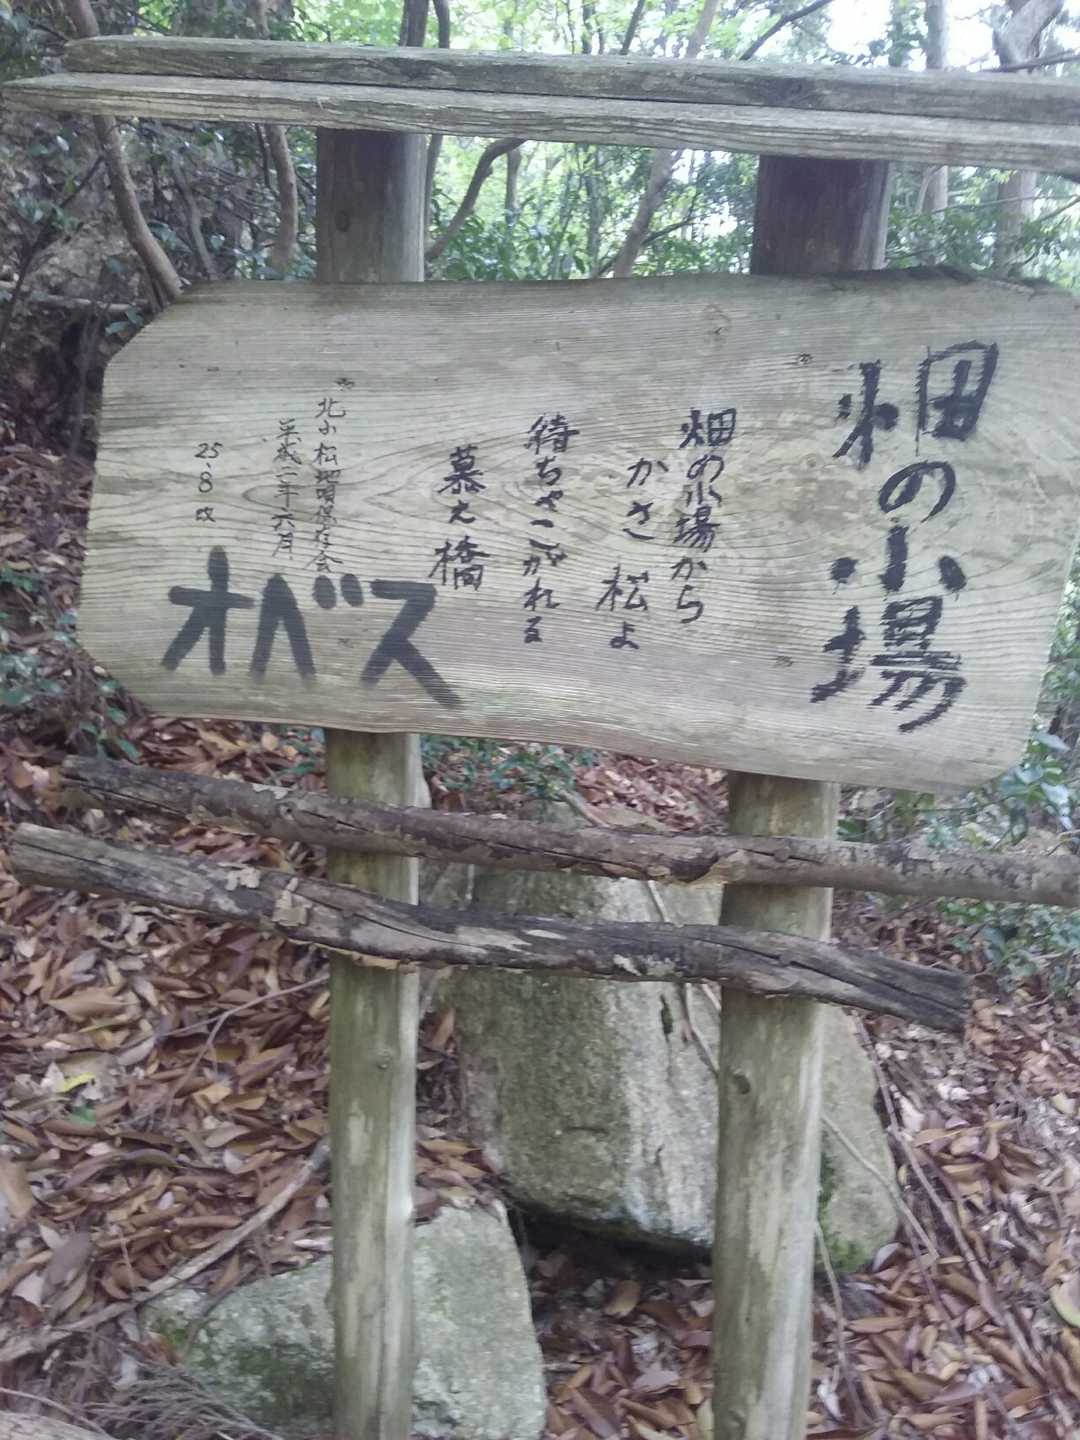 畑の小場
畑の小場から
かさ松よ
待ちやこがれる
慕え橋
北小松地唄保存会
平成二年六月
25、8 改
オベス